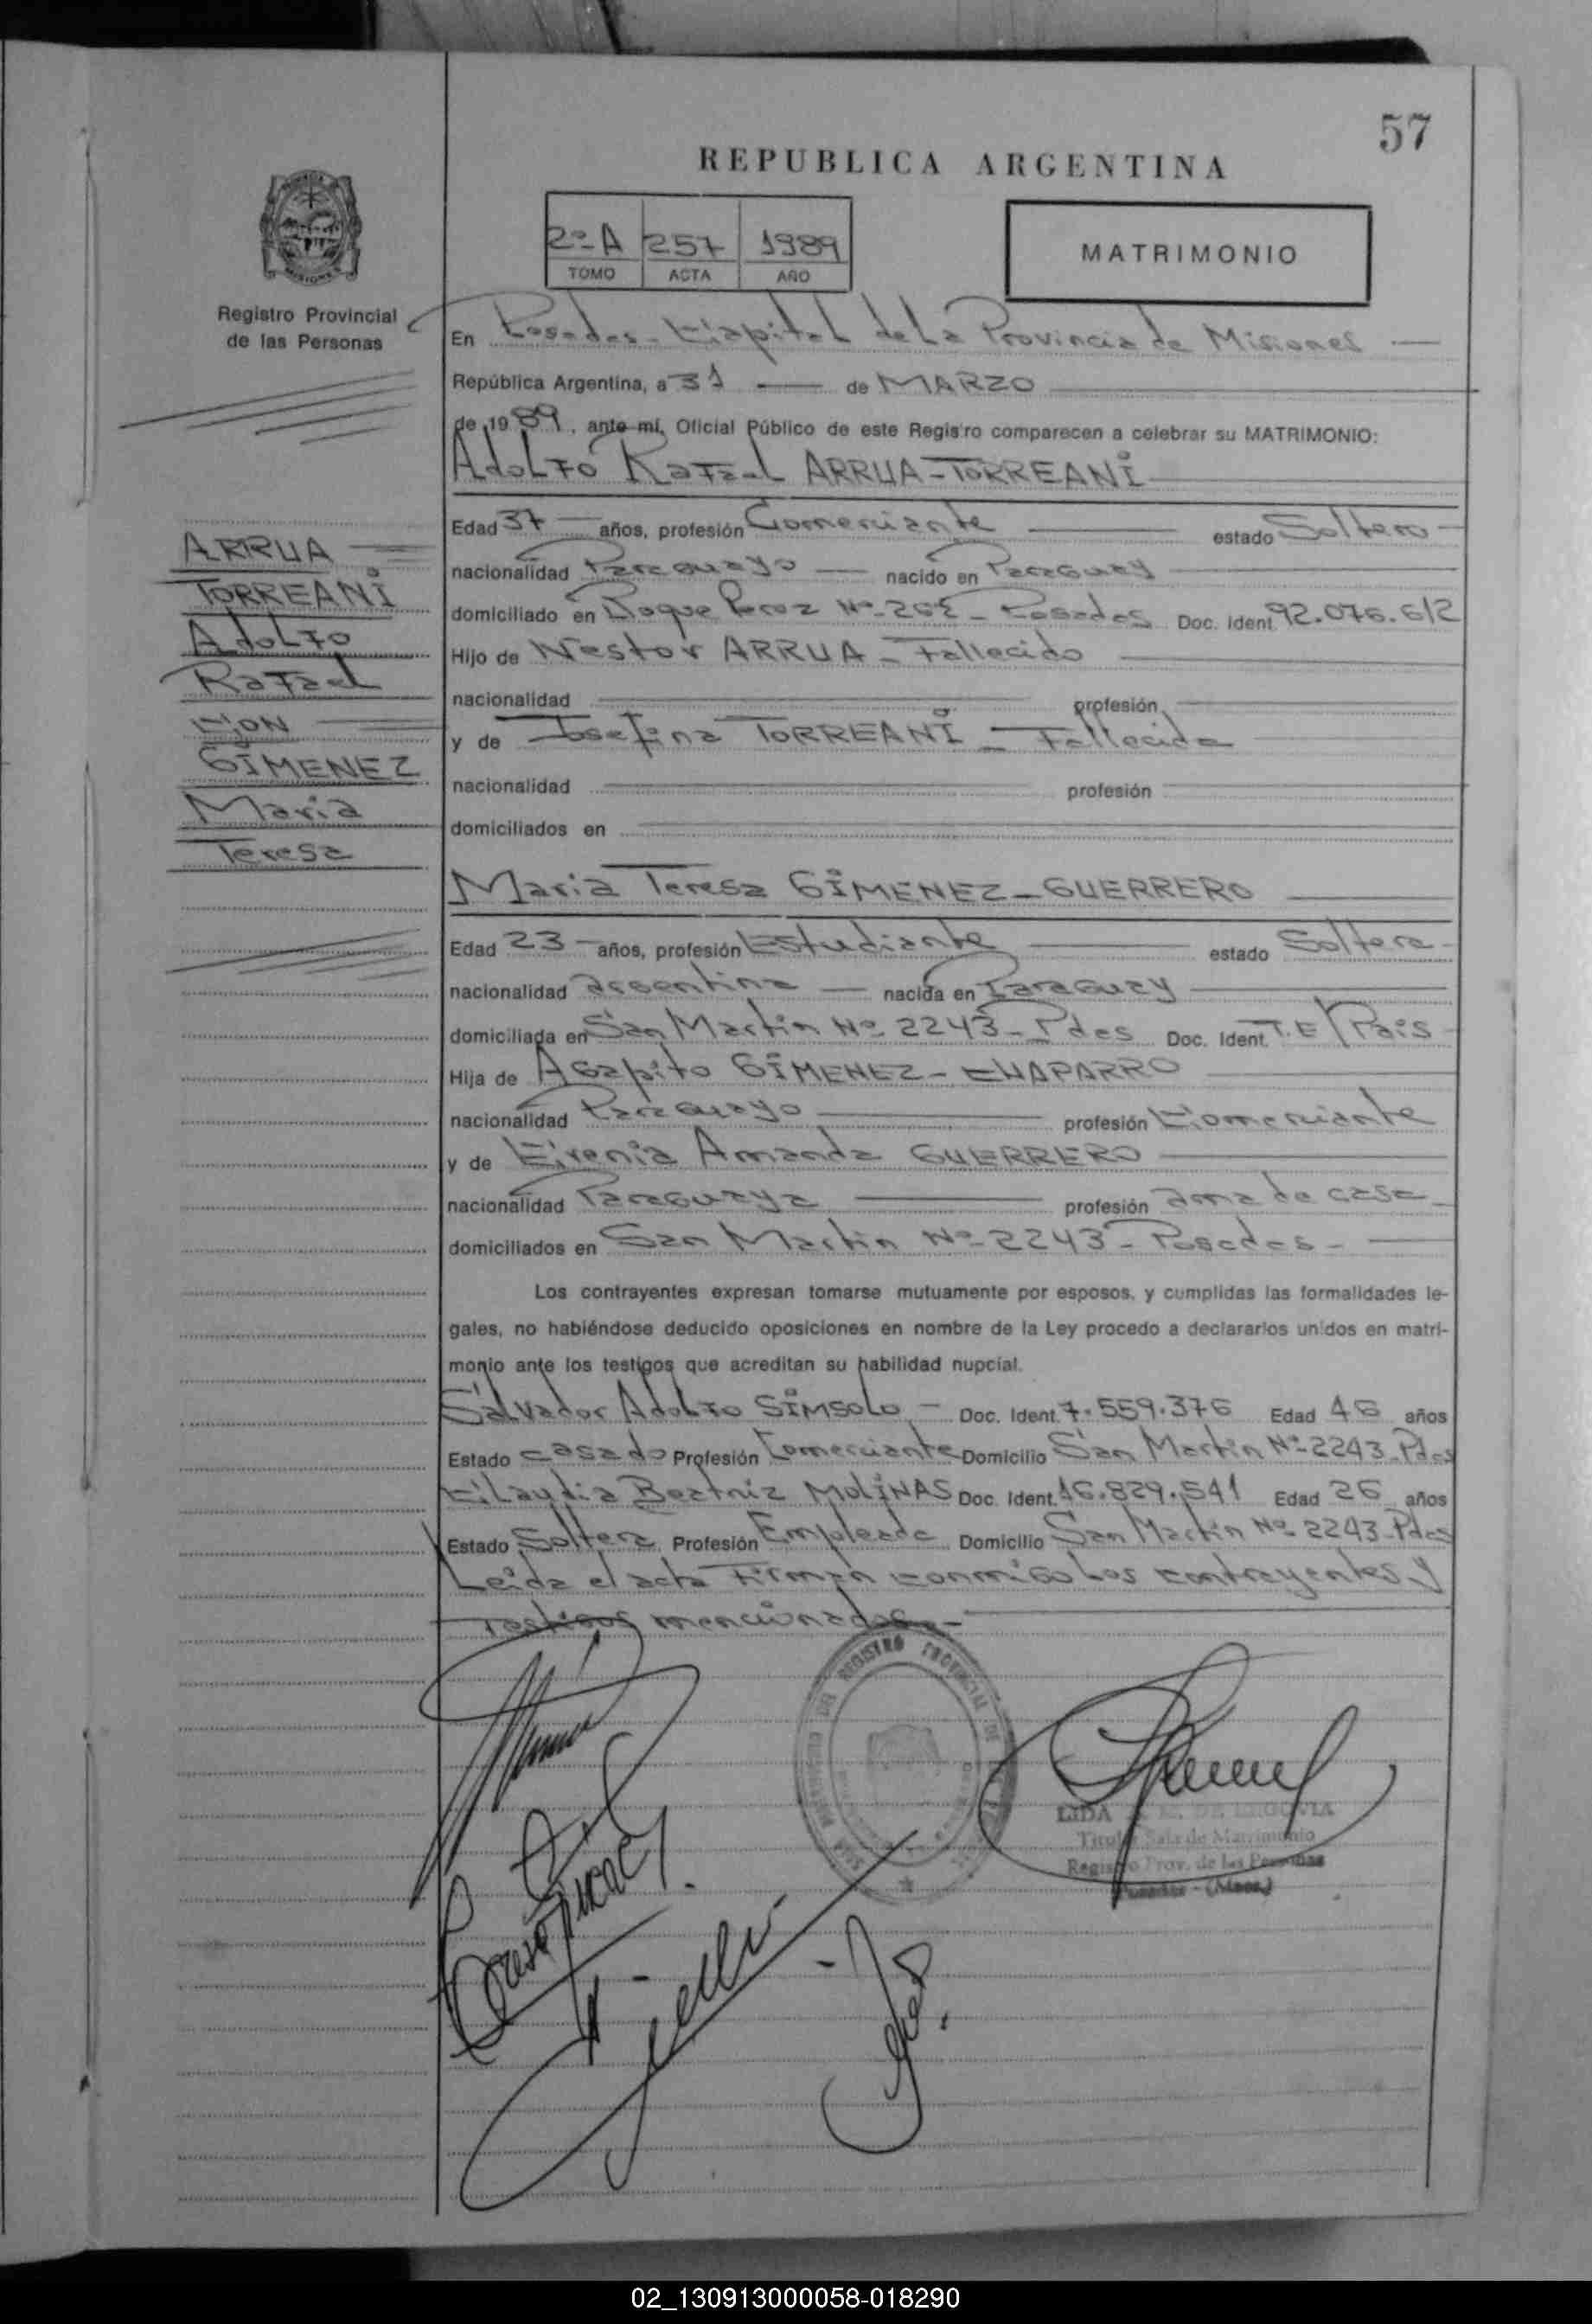 57
REPUBLICA ARGENTINA
2º A 257 1989
TOMO ACTA AÑO
MATRIMONIO
Registro Provincial
de las Personas
En Posadas - Capital de la Provincia de Misiones
República Argentina, a 31 de MARZO
de 1989, ante mí, Oficial Público de este Registro comparecen a celebrar su MATRIMONIO:
Adolfo Rafael ARRUA-TORREANI
Edad 37 años, profesión Comerciante estado Soltero
nacionalidad Paraguayo nacido en Paraguay
domiciliado en Roque Perez Nº Posadas Doc. Ident 92.076.612
Hijo de Nestor ARRUA - Fallecido
nacionalidad profesión
y de Josefina TORREANI - Fallecida
nacionalidad profesión
domiciliados en
ARRUA
TORREANI
Adolfo
Rafael
CON
GIMENEZ
Maria
Teresa
Maria Teresa GIMENEZ-GUERRERO
Edad 23 años, profesión Estudiante estado Soltera
nacionalidad argentina nacida en Paraguay
domiciliada en San Martin Nº 2243 - Pdas Doc. Ident. T.E/Pais
Hija de Agapito GIMENEZ-CHAPARRO
nacionalidad Paraguayo profesión Comerciante
y de Cirenia Amanda GUERRERO
nacionalidad Paraguaya profesión ama de casa
domiciliados en San Martin Nº 2243 - Posadas -
Los contrayentes expresan tomarse mutuamente por esposos, y cumplidas las formalidades le-
gales, no habiéndose deducido oposiciones en nombre de la Ley procedo a declararlos unidos en matri-
monio ante los testigos que acreditan su habilidad nupcial.
Salvador Adolfo SIMSOLO - Doc. Ident. 7.559.376 Edad 46 años
Estado casado Profesión Comerciante Domicilio San Martin Nº 2243 - Pdas
Claudia Beatriz MOLINAS Doc. Ident. 16.829.541 Edad 26 años
Estado Soltera Profesión Empleada Domicilio San Martin Nº 2243 - Pdas
Leida el acta Firman conmigo Los contrayentes y
Testigos mencionados. -
REGISTRO PROVINCIAL DE
LIDA DE SEGOVIA
Titular Sala de Matrimonio
Registro Prov. de las Personas
Posadas - (Mnes.)
02_130913000058-018290